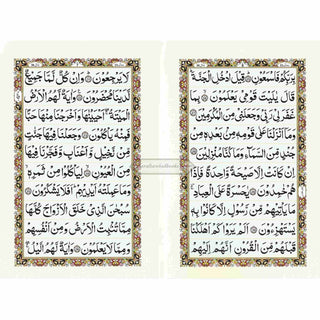 بِرَبِّكُمْ فَاسْمَعُونِ ۝ قِيلَ ادْخُلِ الْجَنَّةَ
قَالَ يٰلَيْتَ قَوْمِي يَعْلَمُونَ ۝ بِمَا
غَفَرَ لِي رَبِّي وَجَعَلَنِي مِنَ الْمُكْرَمِينَ ۝
وَمَا أَنْزَلْنَا عَلٰى قَوْمِهِ مِنْ بَعْدِهِ مِنْ
جُنْدٍ مِنَ السَّمَاءِ وَمَا كُنَّا مُنْزِلِينَ ۝
اِنْ كَانَتْ اِلَّا صَيْحَةً وَاحِدَةً فَاِذَا
هُمْ خٰمِدُونَ ۝ يٰحَسْرَةً عَلَى الْعِبَادِ
مَا يَأْتِيهِمْ مِنْ رَسُولٍ اِلَّا كَانُوا بِهِ
يَسْتَهْزِءُونَ ۝ اَلَمْ يَرَوْا كَمْ اَهْلَكْنَا
قَبْلَهُمْ مِنَ الْقُرُونِ اَنَّهُمْ اِلَيْهِمْ
لَا يَرْجِعُونَ ۝ وَاِنْ كُلٌّ لَمَّا جَمِيعٌ
لَدَيْنَا مُحْضَرُونَ ۝ وَاٰيَةٌ لَهُمُ الْاَرْضُ
الْمَيْتَةُ اَحْيَيْنٰهَا وَاَخْرَجْنَا مِنْهَا حَبًّا
فَمِنْهُ يَأْكُلُونَ ۝ وَجَعَلْنَا فِيهَا جَنّٰتٍ
مِنْ نَخِيلٍ وَاَعْنَابٍ وَفَجَّرْنَا فِيهَا
مِنَ الْعُيُونِ ۝ لِيَأْكُلُوا مِنْ ثَمَرِهِ
وَمَا عَمِلَتْهُ اَيْدِيهِمْ اَفَلَا يَشْكُرُونَ ۝
سُبْحٰنَ الَّذِي خَلَقَ الْاَزْوَاجَ كُلَّهَا
مِمَّا تُنْبِتُ الْاَرْضُ وَمِنْ اَنْفُسِهِمْ
وَمِمَّا لَا يَعْلَمُونَ ۝ وَاٰيَةٌ لَهُمُ الَّيْلُ